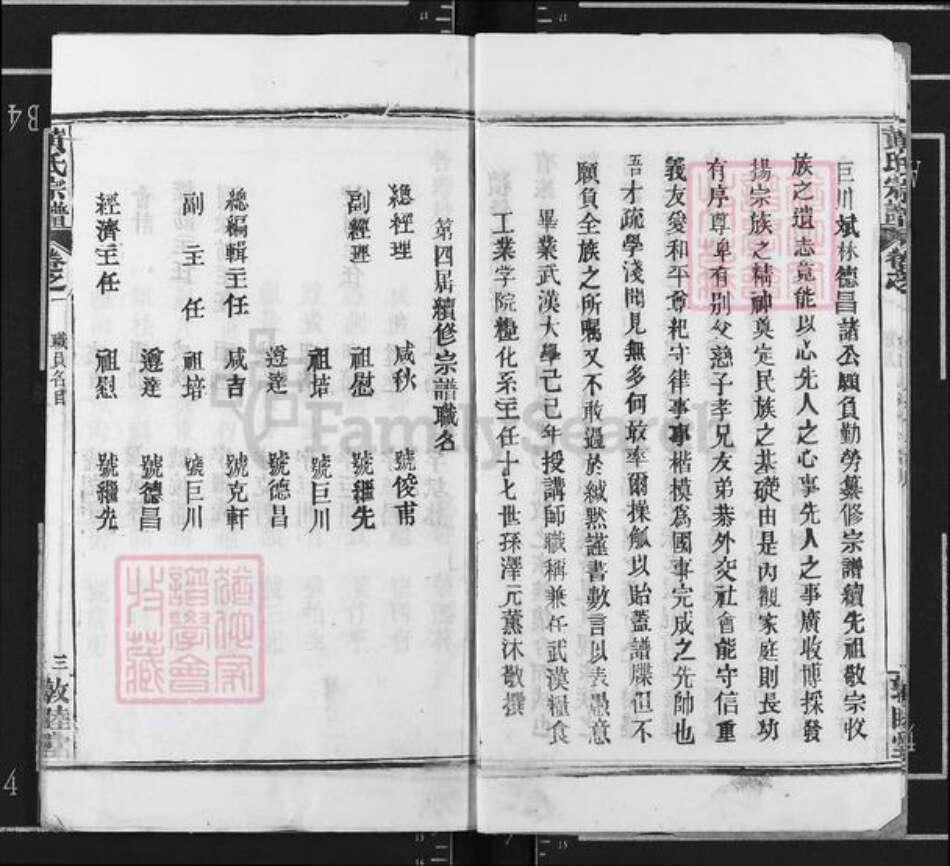 巨川斌林德昌諸公願負勤勞纂修宗譜續先祖敬宗收
族之遺志竟能以心先人之心事先人之事廣收博採發
揚宗族之精神奠定民族之基礎由是內觀家庭則長幼
有序尊卑有別父慈子孝兄友弟恭外交社會能守信重
義友愛和平尊祀守律事事楷模為國事完成之先帥也
吾才疏學淺聞見無多何敢率爾操觚以貽蓋譜牒但不
願負全族之所囑又不敢過於緘默謹書數言以表愚意
畢業武漢大學己巳年授講師職稱兼任武漢糧食
工業學院糧化系主任十七世孫澤元薰沐敬撰
黃氏宗譜
卷之一
職員名目
三
敦睦堂
第四屆續修宗譜職名
總經理 咸秋 號俊甫
副經理 祖慰 號繼先
祖培 號巨川
遵達 號德昌
總編輯主任 咸吉 號克軒
副主任 祖培 號巨川
遵達 號德昌
經濟主任 祖慰 號繼先
FamilySearch
B4
4